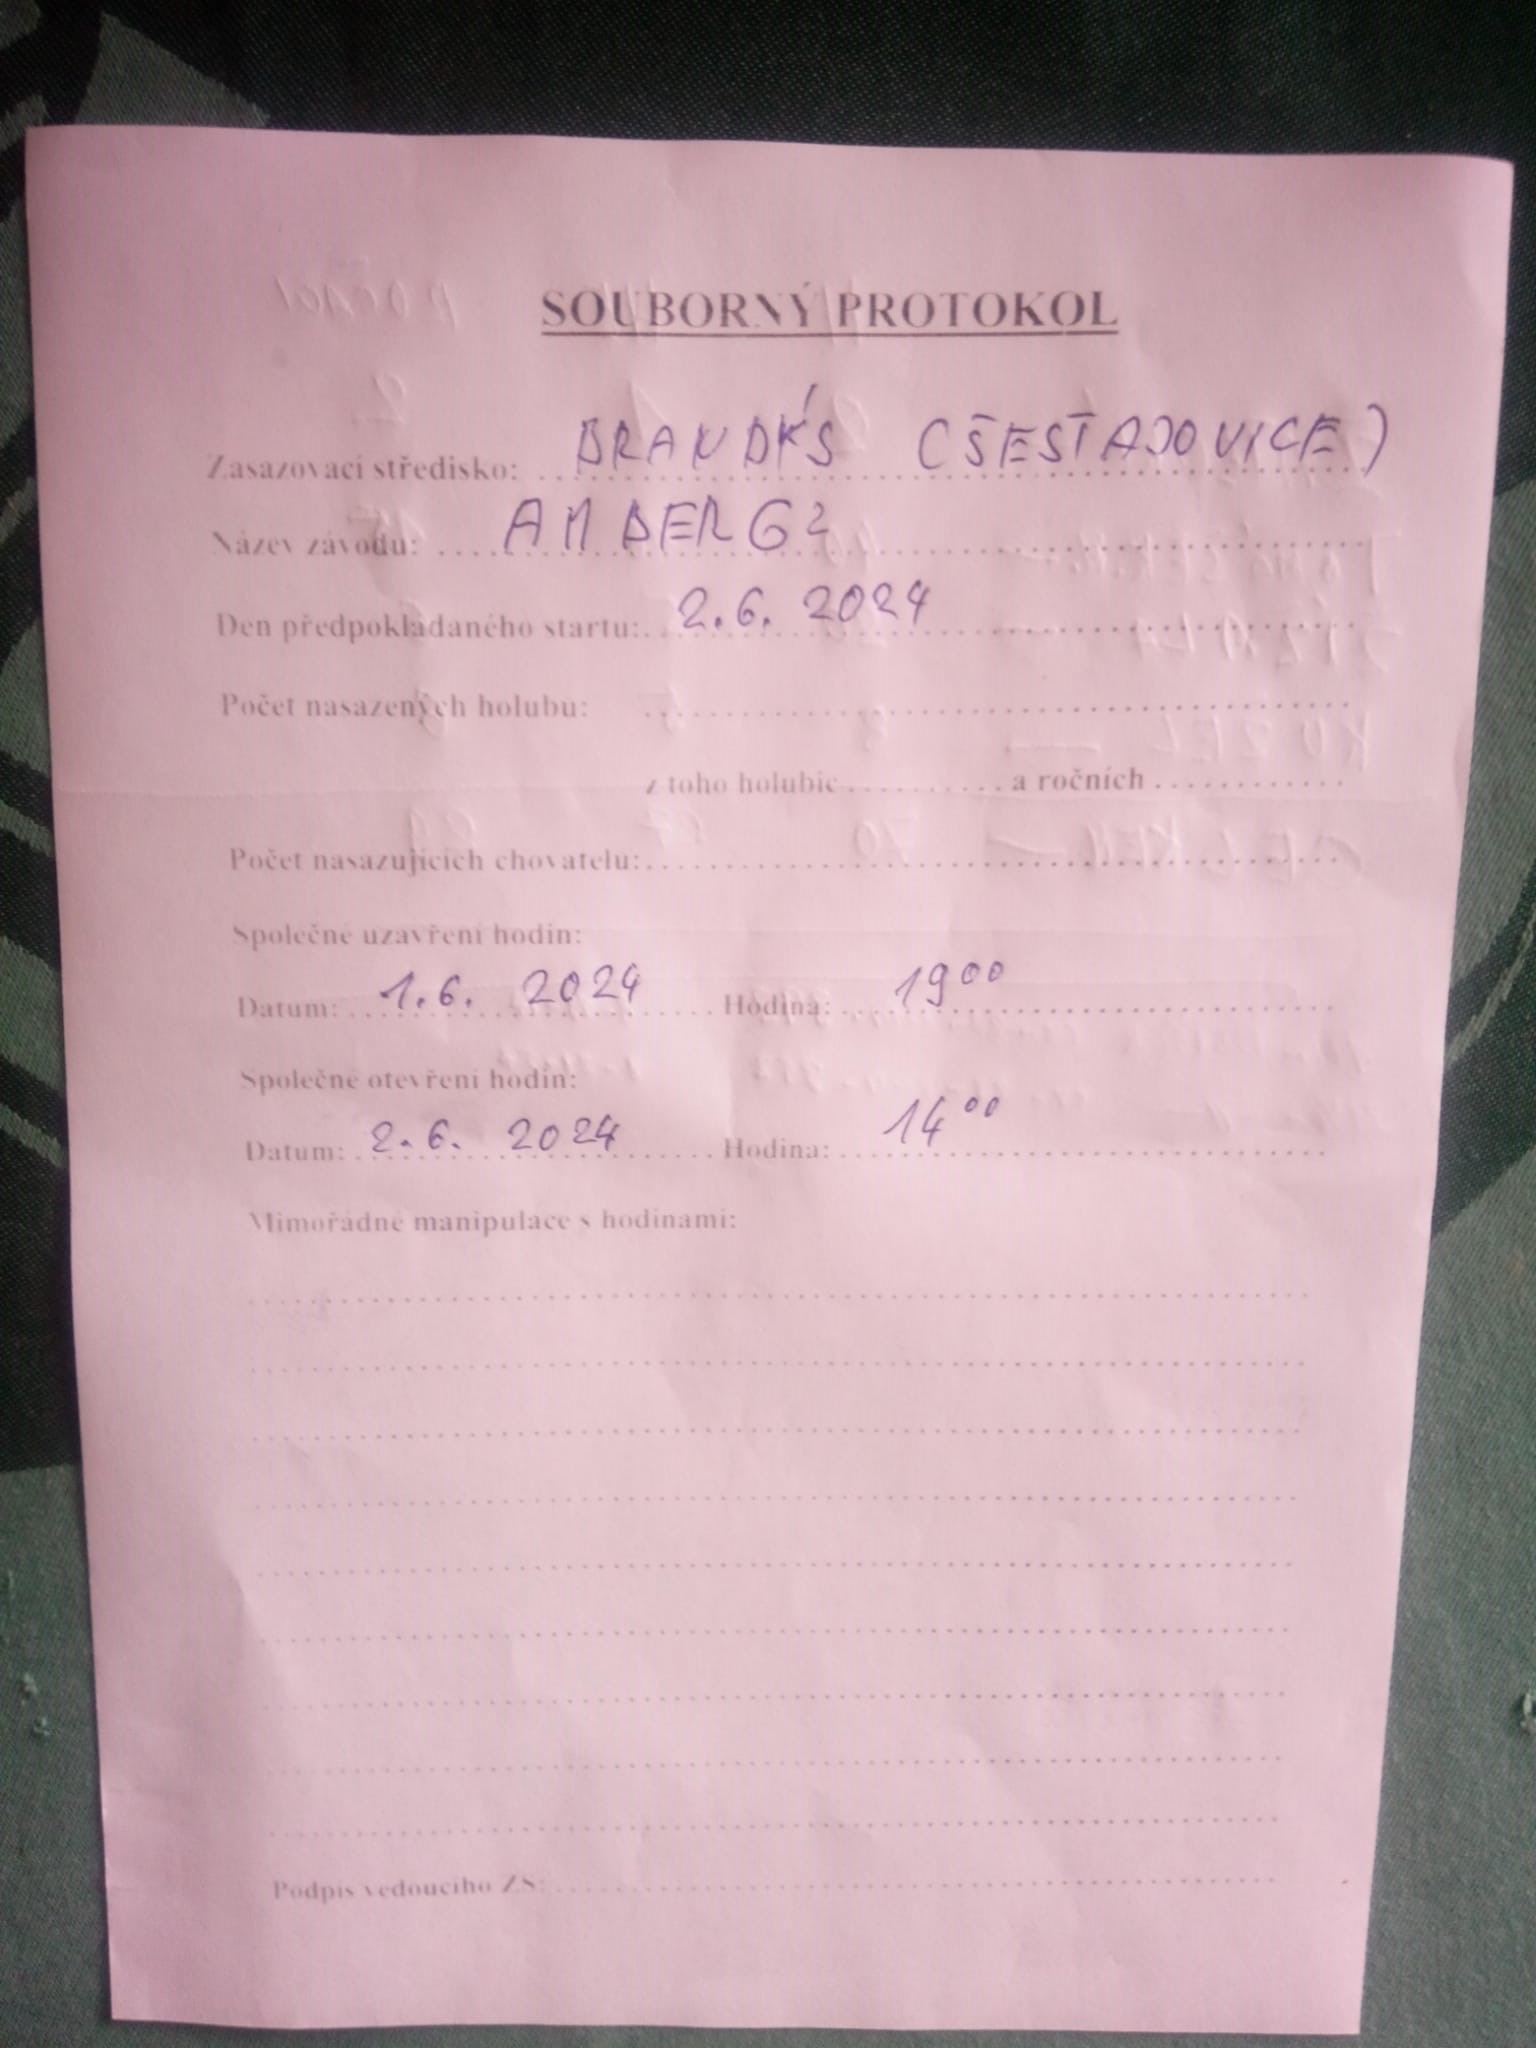 SOUBORNÝ PROTOKOL
Zasazovací středisko: BRANDÝS (ŠESTAJOVICE)
Název závodu: AMBERG 2
Den předpokládaného startu: 2.6. 2024
Počet nasazených holubu:
z toho holubic a ročních
Počet nasazujících chovatelu:
Společné uzavření hodin:
Datum: 1.6. 2024 Hodina: 19 00
Společné otevření hodin:
Datum: 2.6. 2024 Hodina: 14 00
Mimořádné manipulace s hodinami:
Podpis vedoucího ZS: